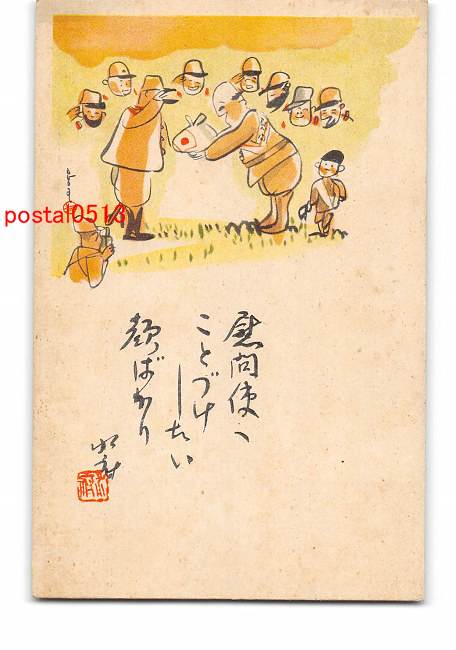 postal0513
慰問使へ
ことづけ
したい
顔ばかり